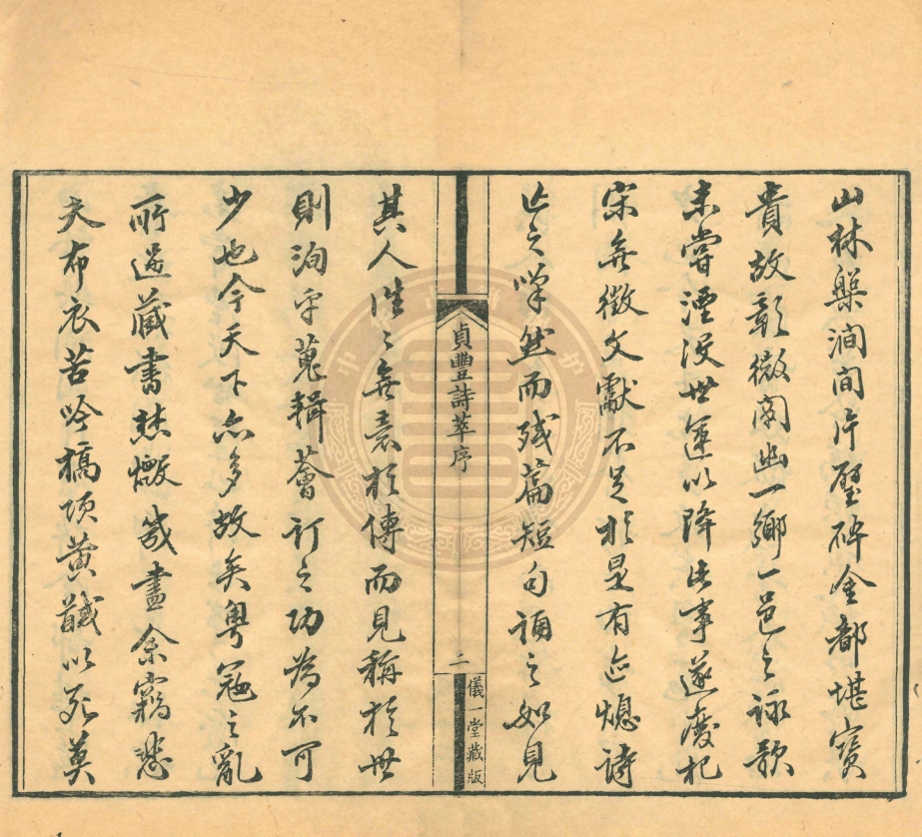 山林槃澗間片璧碎金都堪寶
貴故彰微闡幽一鄉一邑之詠歌
未嘗湮没世運以降此事遂廢杞
宋無徵文獻不足於是有迹熄詩
亡之嘆然而殘篇短句誦之如見
貞豐詩萃序
二
儀一堂藏版
其人往〻無表於傳而見稱於世
則洵乎蒐輯薈訂之功為不可
少也今天下亦多故矣粤冦之亂
所過藏書燬幾盡余竊悲
夫布衣苦吟槁項黃馘以死莫